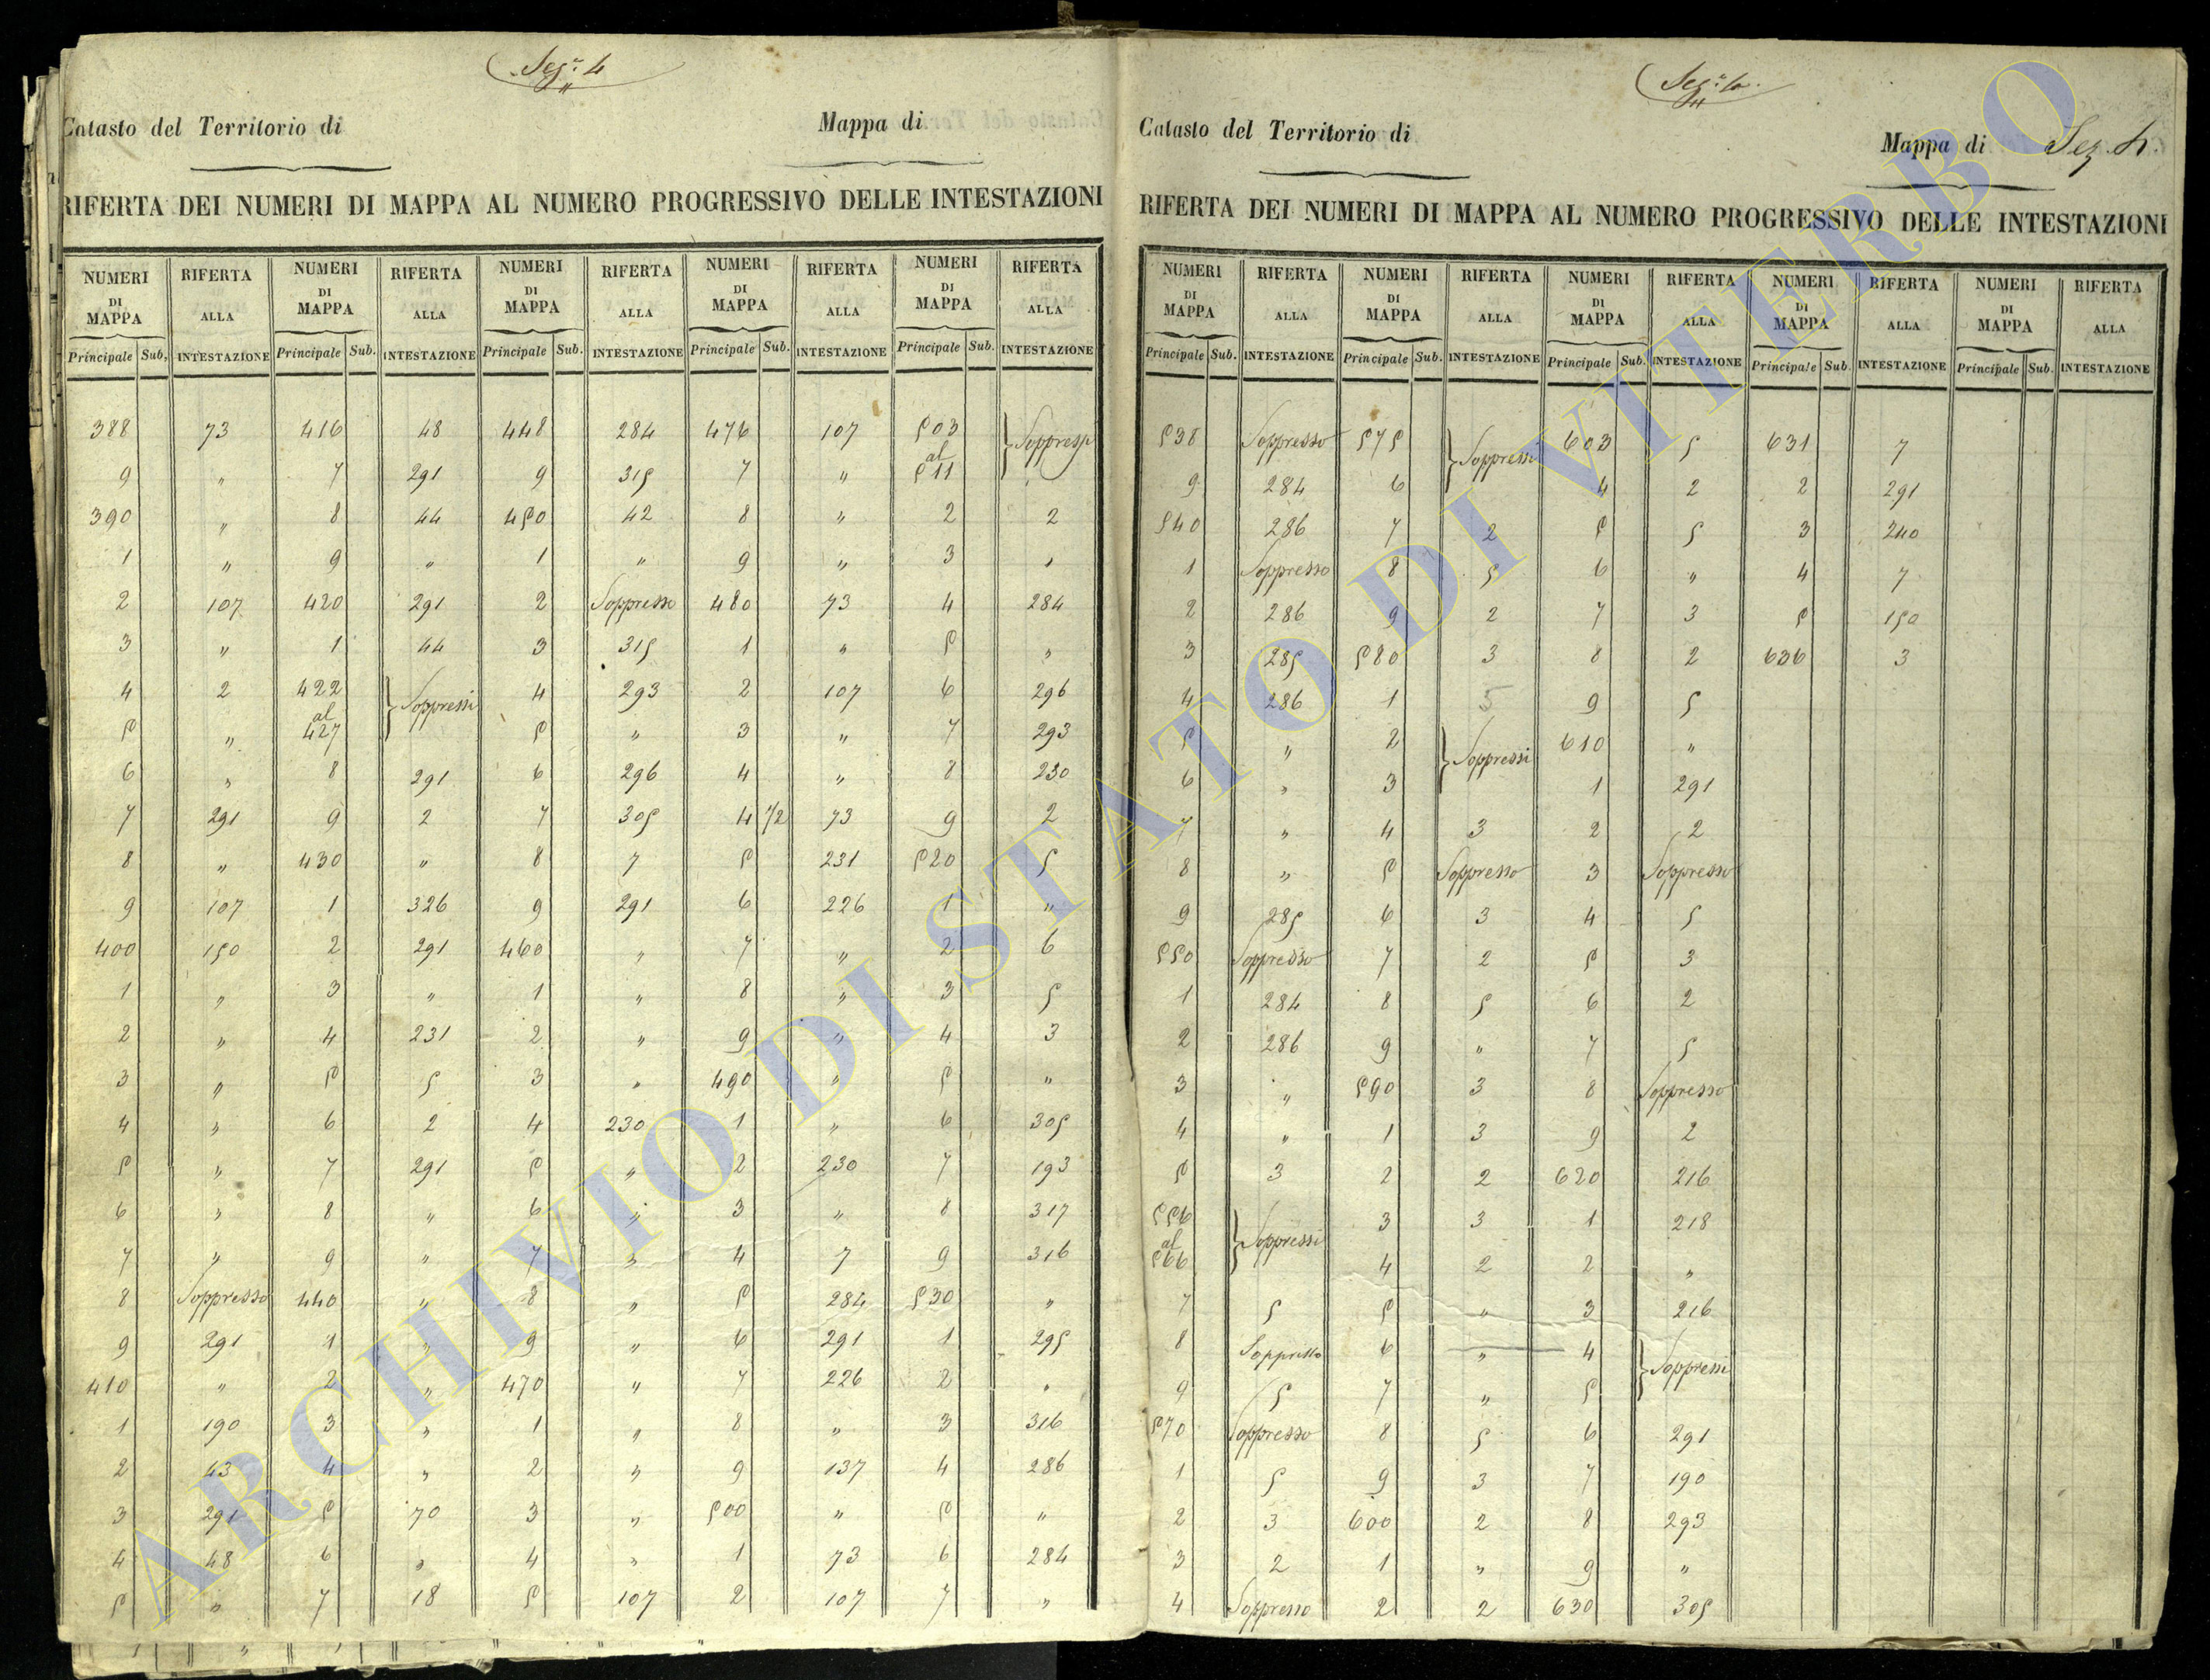 Sez.e 4
Catasto del Territorio di
Mappa di
RIFERTA DEI NUMERI DI MAPPA AL NUMERO PROGRESSIVO DELLE INTESTAZIONI
NUMERI RIFERTA NUMERI RIFERTA NUMERI RIFERTA NUMERI RIFERTA NUMERI RIFERTA
DI MAPPA ALLA DI MAPPA ALLA DI MAPPA ALLA DI MAPPA ALLA DI MAPPA ALLA
Principale Sub. INTESTAZIONE Principale Sub. INTESTAZIONE Principale Sub. INTESTAZIONE Principale Sub. INTESTAZIONE Principale Sub. INTESTAZIONE
388 73 416 48 448 284 476 107 503 } Soppressi
9 " 7 291 9 315 7 " al 511
390 " 8 44 450 42 8 " 2 2
1 " 9 " 1 " 9 " 3 "
2 107 420 291 2 Soppresso 480 73 4 284
3 " 1 44 3 315 1 " 5 "
4 2 422 } Soppressi 4 293 2 107 6 296
5 " al 427 5 " 3 " 7 293
6 " 8 291 6 296 4 " 8 230
7 291 9 2 7 305 4 1/2 73 9 2
8 " 430 " 8 7 5 231 520 5
9 107 1 326 9 291 6 226 1 "
400 150 2 291 460 " 7 " 2 6
1 " 3 " 1 " 8 " 3 5
2 " 4 231 2 " 9 " 4 3
3 " 5 5 3 " 490 " 5 "
4 " 6 2 4 230 1 " 6 305
5 " 7 291 5 " 2 230 7 193
6 " 8 " 6 " 3 " 8 317
7 " 9 " 7 " 4 7 9 316
8 Soppresso 440 " 8 " 5 284 530 "
9 291 1 " 9 " 6 291 1 295
410 " 2 " 470 " 7 226 2 "
1 190 3 " 1 " 8 " 3 316
2 43 4 " 2 " 9 137 4 286
3 291 5 70 3 " 500 " 5 "
4 48 6 " 4 " 1 73 6 284
5 " 7 18 5 107 2 107 7 "
Sez.e 4
Catasto del Territorio di
Mappa di Sez. 4.
RIFERTA DEI NUMERI DI MAPPA AL NUMERO PROGRESSIVO DELLE INTESTAZIONI
NUMERI RIFERTA NUMERI RIFERTA NUMERI RIFERTA NUMERI RIFERTA NUMERI RIFERTA
DI MAPPA ALLA DI MAPPA ALLA DI MAPPA ALLA DI MAPPA ALLA DI MAPPA ALLA
Principale Sub. INTESTAZIONE Principale Sub. INTESTAZIONE Principale Sub. INTESTAZIONE Principale Sub. INTESTAZIONE Principale Sub. INTESTAZIONE
538 Soppresso 575 } Soppressi 603 5 631 7
9 284 6 4 2 2 291
540 286 7 2 5 5 3 240
1 Soppresso 8 5 6 " 4 7
2 286 9 2 7 3 5 150
3 285 580 3 8 2 636 3
4 286 1 5 9 5
5 " 2 } Soppressi 610 "
6 " 3 1 291
7 " 4 3 2 2
8 " 5 Soppresso 3 Soppresso
9 285 6 3 4 5
550 Soppresso 7 2 5 3
1 284 8 5 6 2
2 286 9 " 7 5
3 " 590 3 8 Soppresso
4 " 1 3 9 2
5 3 2 2 620 216
556 } Soppressi 3 3 1 218
al 566 4 2 2 "
7 5 5 " 3 216
8 Soppresso 6 " 4 } Soppressi
9 5 7 " 5
570 Soppresso 8 5 6 291
1 5 9 3 7 190
2 3 600 2 8 293
3 2 1 " 9 "
4 Soppresso 2 2 630 305
ARCHIVIO DI STATO DI VITERBO